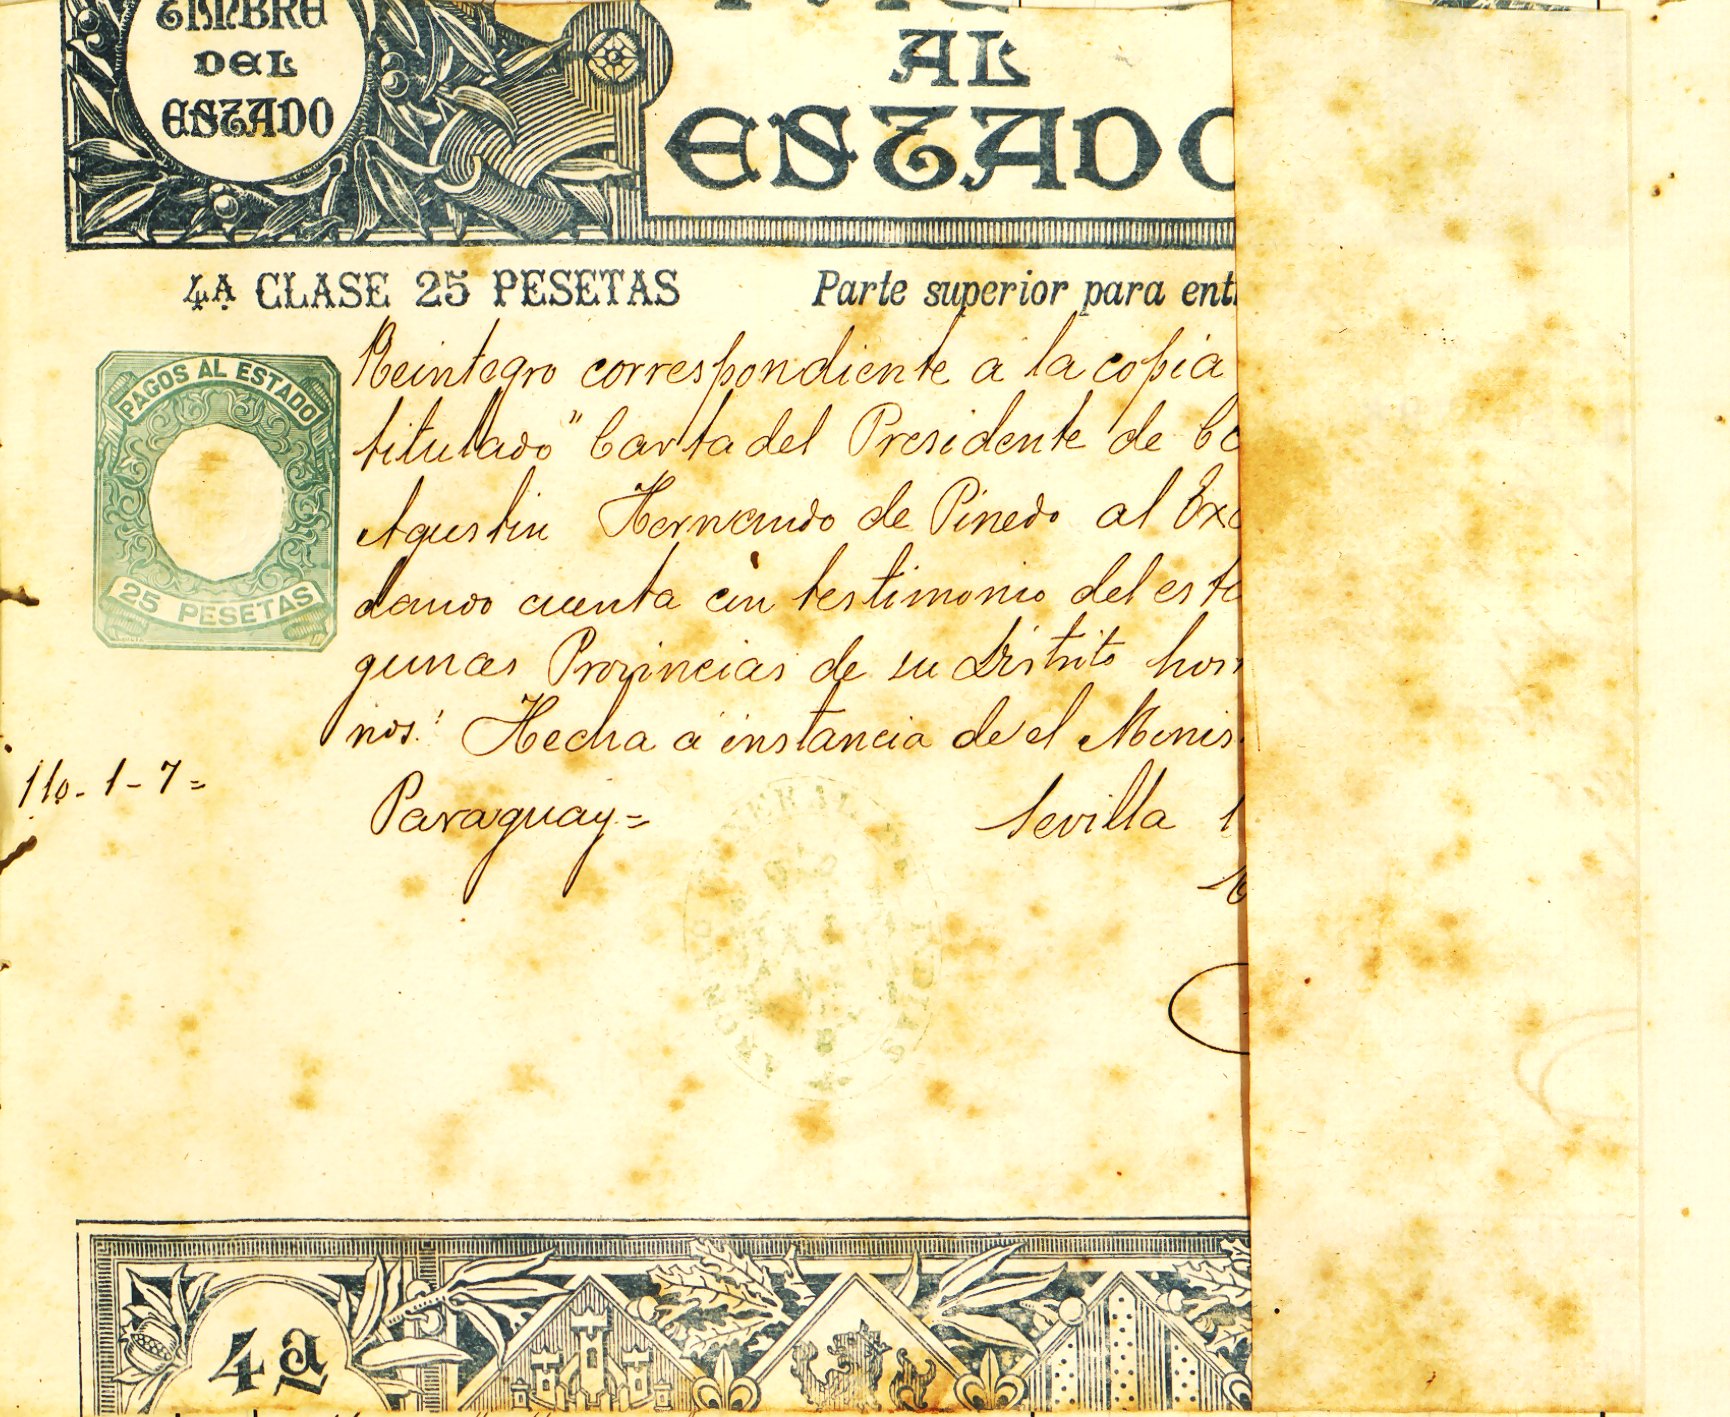 TIMBRE
DEL
ESTADO
AL
ESTADO
4ª CLASE 25 PESETAS
Parte superior para ent
PAGOS AL ESTADO
25 PESETAS
Reintegro correspondiente a la copia
titulado "Carta del Presidente de
Agustin Hernando de Pinedo al Exc
dando cuenta con testimonio del est
gunas Provincias de su Distrito
nos." Hecha a instancia de el Minis
110-1-7=
Paraguay=
Sevilla 1
4ª